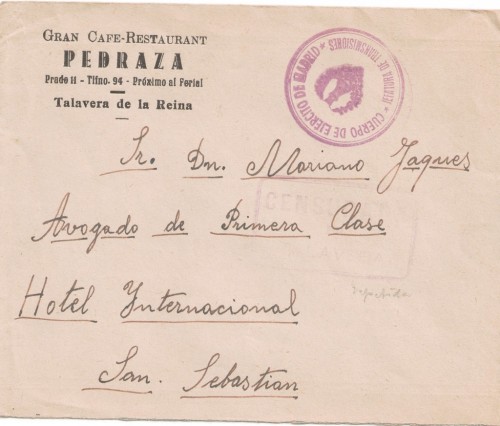 GRAN CAFE-RESTAURANT
PEDRAZA
Prado 11 - Tlfno. 94 - Próximo al Ferial
Talavera de la Reina
CUERPO DE EJERCITO DE MADRID
DE TRANSMISIONES
Sr. Dn. Mariano Jaques
CENSU
Avogado de Primera Clase
Hotel Internacional
San. Sebastian